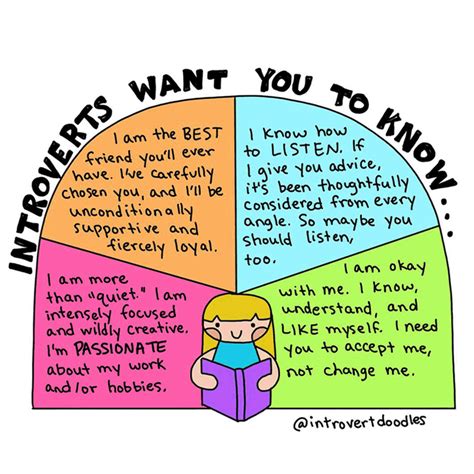 INTROVERTS WANT YOU TO KNOW...
I am the BEST
friend you'll ever
have. I've carefully
chosen you, and I'll be
unconditionally
supportive and
fiercely loyal.
I know how
to LISTEN. If
I give you advice,
it's been thoughtfully
considered from every
angle. So maybe you
should listen,
too.
I am more
than "quiet." I am
intensely focused
and wildly creative.
I'm PASSIONATE
about my work
and/or hobbies.
I am okay
with me. I know,
understand, and
LIKE myself. I need
you to accept me,
not change me.
@introvertdoodles